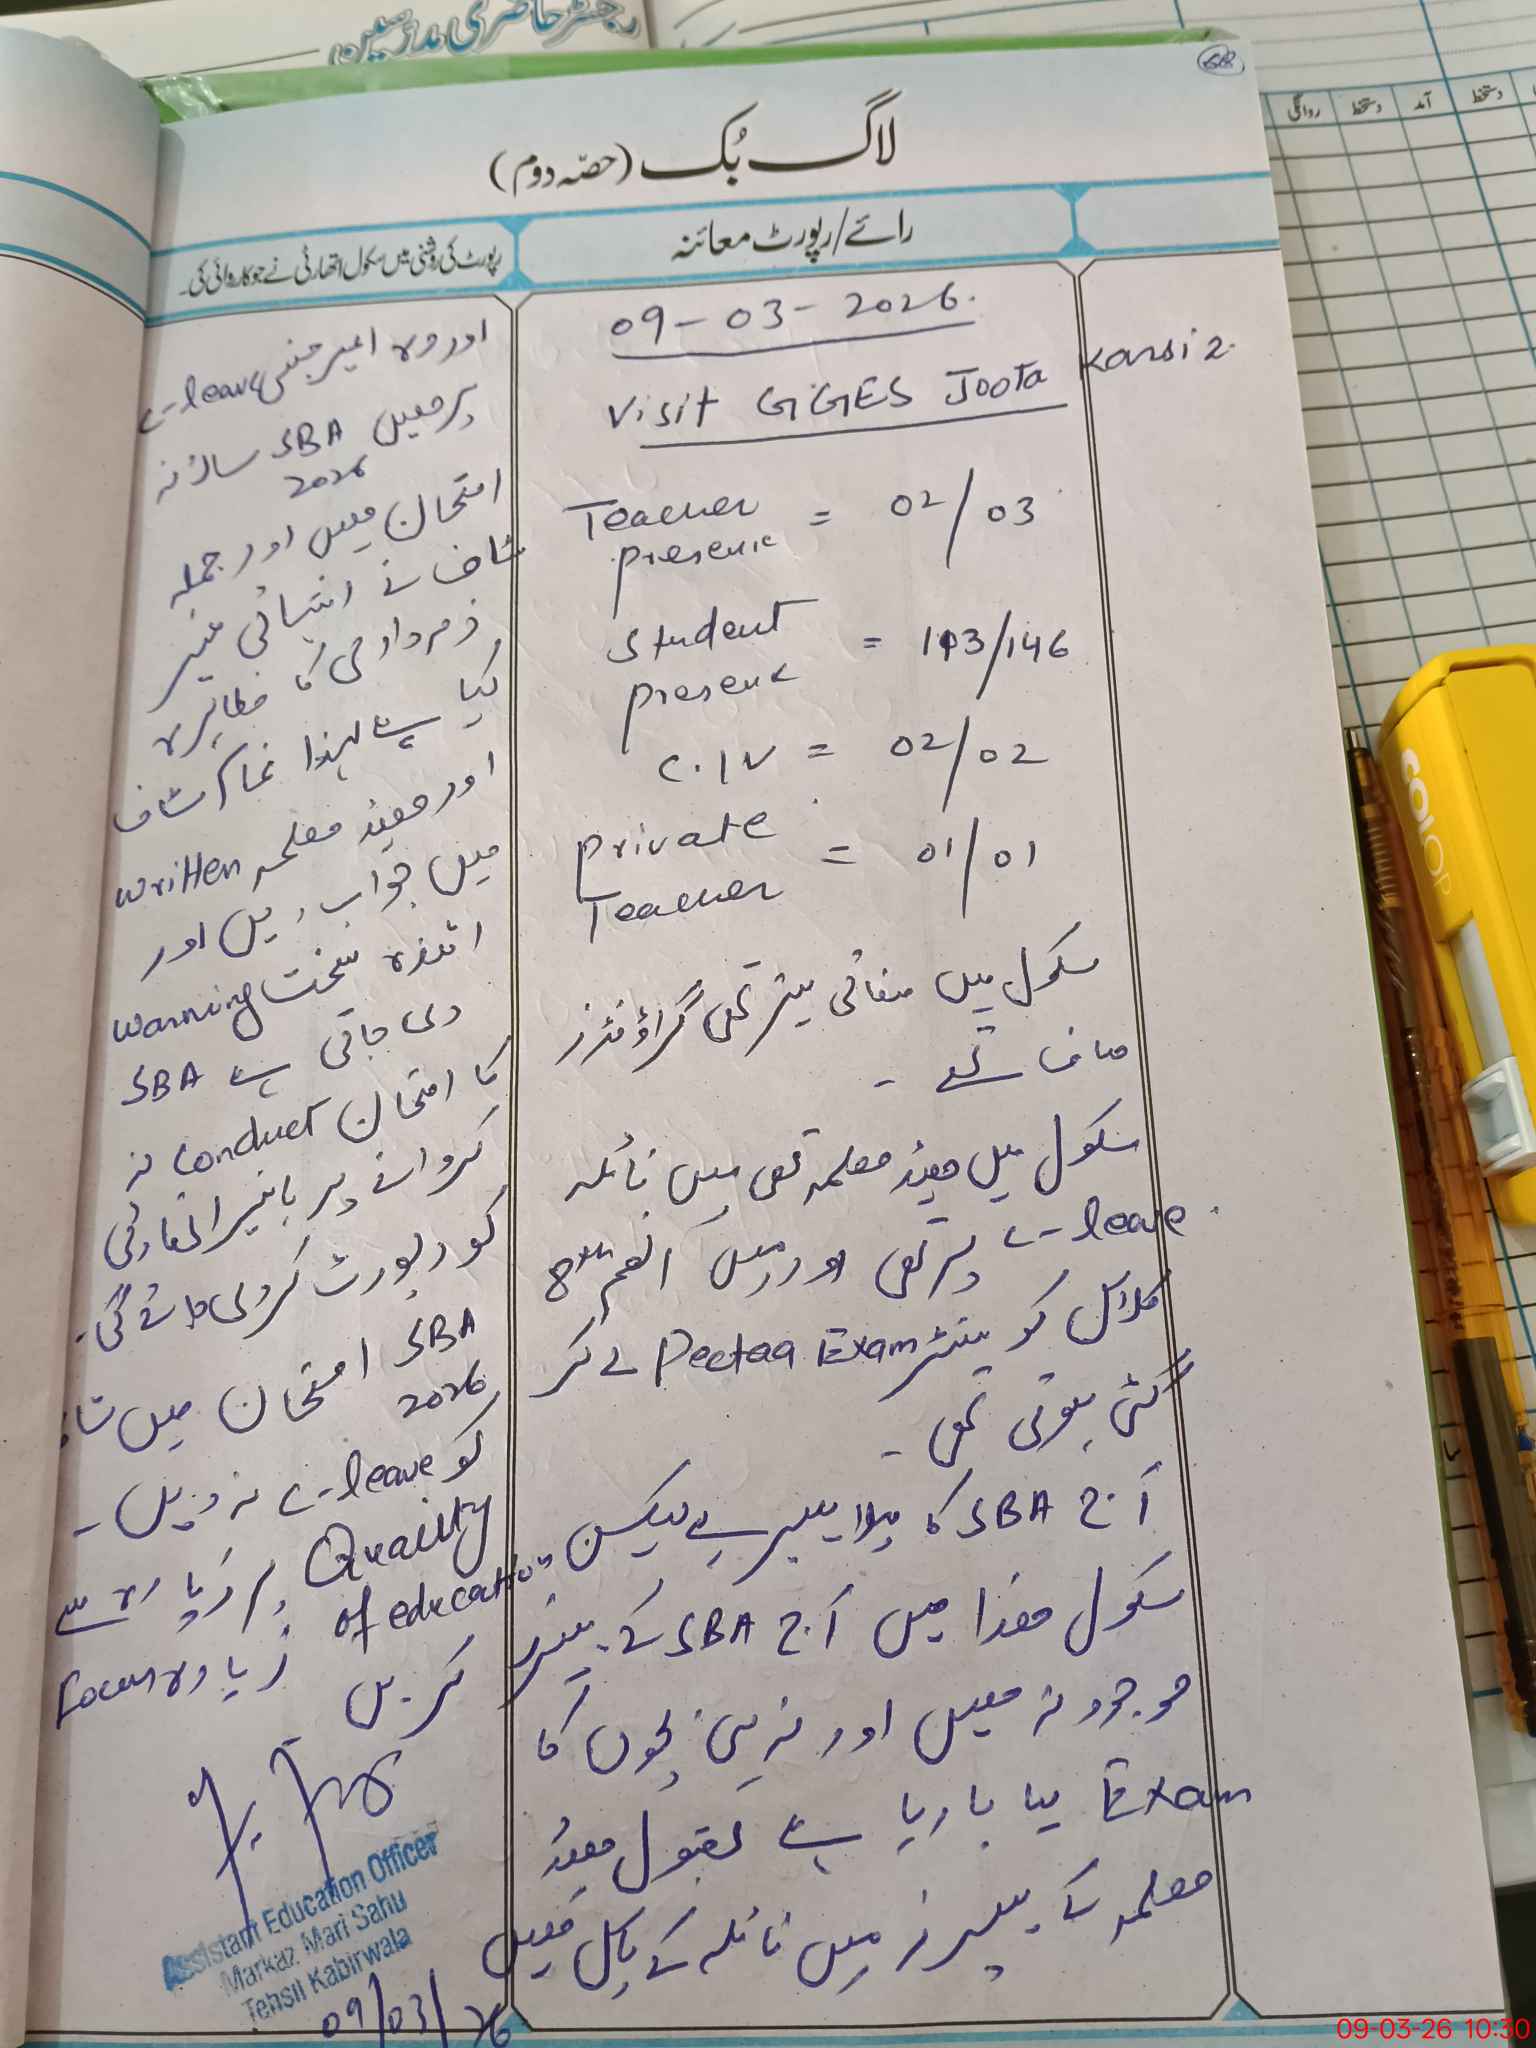 رجسٹر حاضری مدرسین
روانگی دستخط آمد دستخط
لاگ بُک (حصّہ دوم)
رائے/رپورٹ معائنہ
رپورٹ کی روشنی میں سکول اتھارٹی نے جو کاروائی کی۔
09-03-2026.
Visit GGES Joota Kansi 2.
Teacher = 02/03
present
Student = 113/146
present
C.I.V = 02/02
Private = 01/01
Teacher
سکول میں صفائی بہتر تھی گراؤنڈز
صاف تھے ۔
سکول میں ہیڈ معلمہ تھی مس نائلہ
c-leave پر تھی اور مس انعم 8th
کلاس کو سنٹر Pectaa Exam لے کر
گئی ہوئی تھی ۔
آج SBA کا پہلا پیپر ہے لیکن
سکول ھذا میں آج SBA کے پیپرز
موجود نہ ہیں اور نہ ہی بچوں کا
Exam لیا جا رہا ہے بقول ہیڈ
معلمہ کے پیپرز مس نائلہ کے پاس ہیں
اور وہ ایمرجنسی c-leave
پر ہیں SBA سالانہ
2026
امتحان میں اور جملہ
سٹاف نے انتہائی غیر
ذمہ داری کا مظاہرہ
کیا ہے لہذا تمام سٹاف
اور ہیڈ معلمہ written
میں جواب دیں اور
ائندہ سخت warning
دی جاتی ہے SBA
کا امتحان conduct نہ
کروانے پر ہائیر اتھارٹی
کو رپورٹ کر دی جائے گی۔
SBA امتحان میں سٹاف
2026
کو c-leave نہ دیں ۔
Quality پر زیادہ سے
of education
زیادہ Focus
کریں
Assistant Education Officer
Markaz Mari Sahu
Tehsil Kabirwala
09/03/26
COLOP
09-03-26 10:30